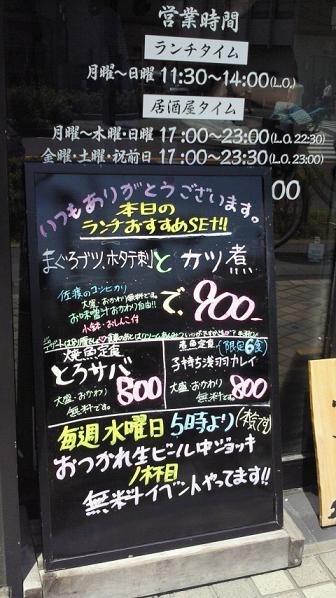 営業時間
ランチタイム
月曜〜日曜 11:30〜14:00(L.O.)
居酒屋タイム
月曜〜木曜・日曜 17:00〜23:00(L.O. 22:30)
金曜・土曜・祝前日 17:00〜23:30(L.O. 23:00)
:00
いつもありがとうございます。
本日の
ランチおすすめSET!!
まぐろブツ、ホタテ刺と カツ煮
佐渡のコシヒカリ
大盛・おかわり無料です。
お味噌汁おかわり自由!!
小鉢・おしんこ付
で、900-
焼魚定食
とろサバ
800
大盛・おかわり
無料です。
煮魚定食 (限定6食)
子持ち浅羽カレイ
大盛おかわり
無料です。
800
毎週水曜日 5時より(本気です)
おつかれ生ビール中ジョッキ
1杯目
無料イベントやってます!!